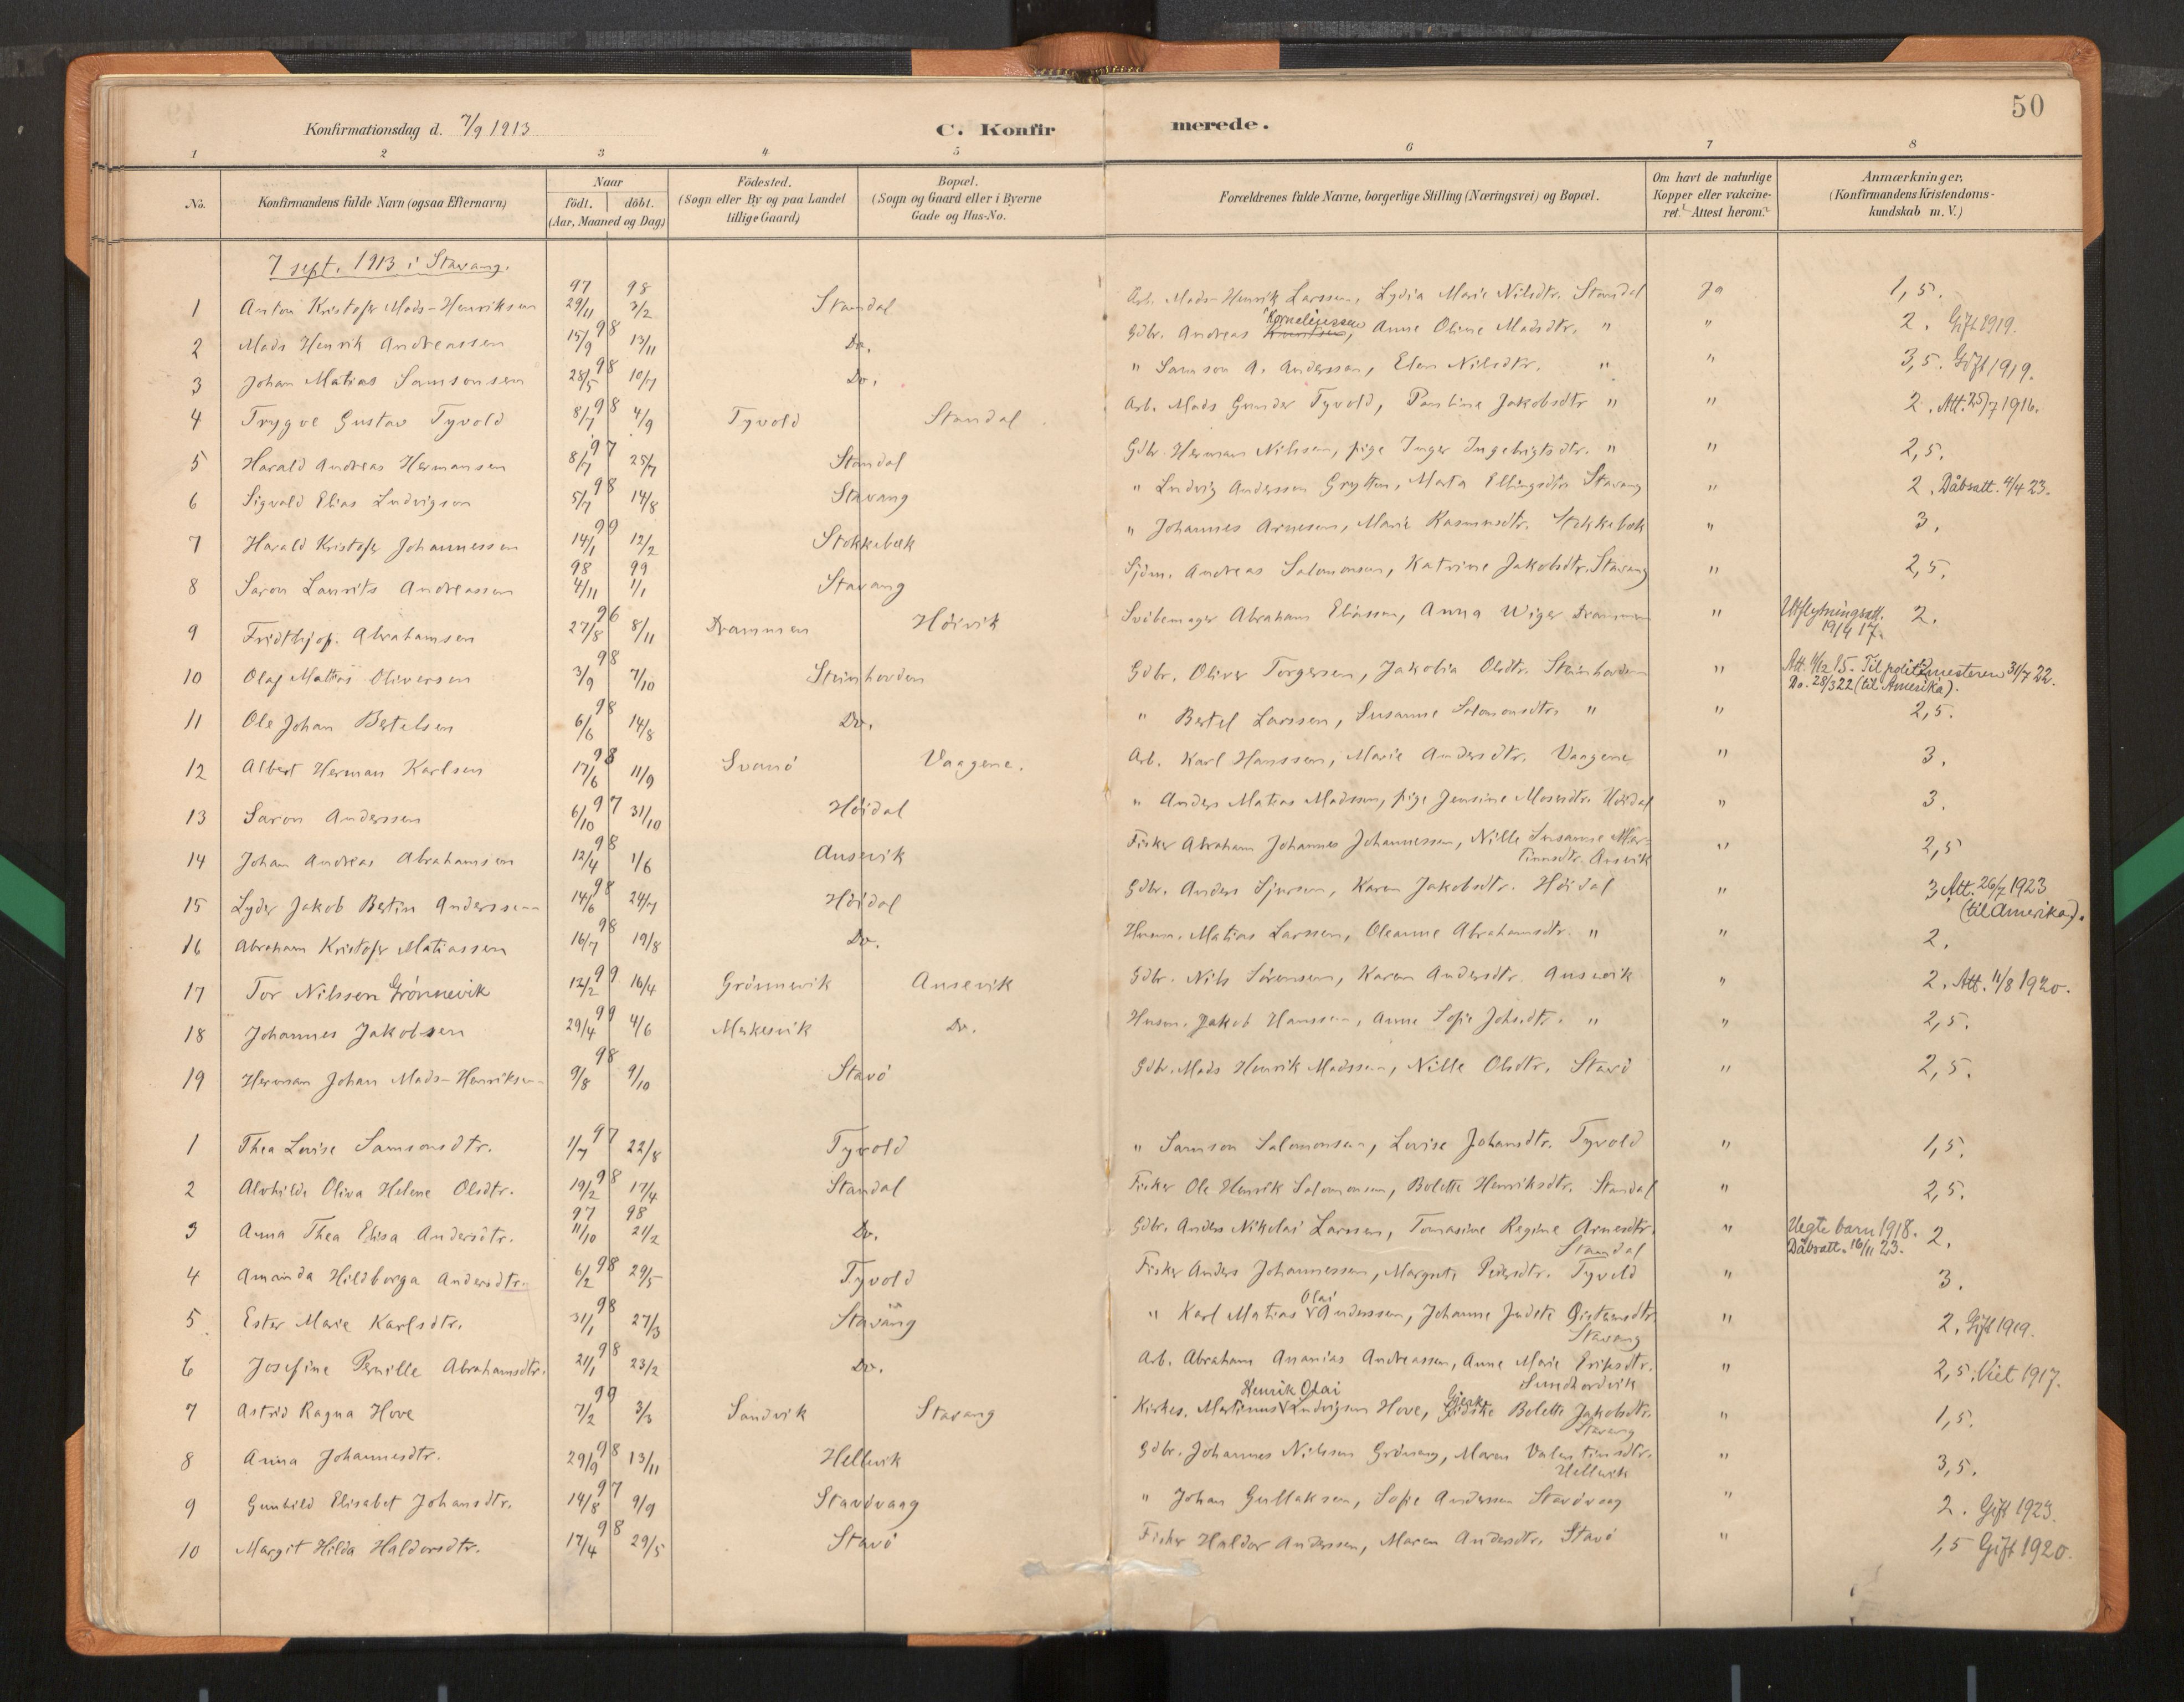 50
Konfirmationsdag d. 7/9 1913
C. Konfirmerede.
1 2 3 4 5 6 7 8
No. Konfirmandens fulde Navn (ogsaa Efternavn) Naar födt. döbt. (Aar, Maaned og Dag) Födested. (Sogn eller By og paa Landet tillige Gaard) Bopæl. (Sogn og Gaard eller i Byerne Gade og Hus-No. Forældrenes fulde Navne, borgerlige Stilling (Næringsvei) og Bopæl. Om havt de naturlige Kopper eller vakcineret. Attest herom. Anmærkninger, (Konfirmandens Kristendomskundskab m. V.)
7 sept. 1913 i Stavang.
1 Anton Kristofer Mads-Henriksen 97 29/11 98 3/2 Standal Arb. Mads-Henrik Larssen, Lydia Marie Nilsdtr. Standal Ja 1,5.
2 Mads Henrik Andreassen 98 15/9 13/11 Do. Gdbr. Andreas Korneliussen, Anne Oline Madsdtr. " " 2. Gift 1919.
3 Johan Matias Samsonsen 98 28/5 10/7 Do. " Samson A. Anderssen, Elen Nilsdtr. " " 3,5. Gift 1919.
4 Trygve Gustav Tyvold 98 8/7 4/9 Tyvold Standal Arb. Mads Gunder Tyvold, Pauline Jakobsdtr " " 2. Att. 25/7 1916.
5 Harald Andreas Hermansen 97 8/7 25/7 Standal Gdbr. Herman Nilssen, pige Inger Ingebrigtsdtr. " " 2,5.
6 Sigvald Elias Ludvigson 98 5/7 14/8 Stavang " Ludvig Anderssen Grytten, Marta Ellingsdtr. Stavang " 2. Dåbsatt. 4/4 23.
7 Harald Kristofer Johannessen 99 14/1 12/2 Stokkebæk " Johannes Arnesen, Marie Rasmusdtr. Stokkebæk " 3.
8 Saron Laurits Andreassen 98 4/11 99 1/1 Stavang Sjöm. Andreas Salomonsen, Katrine Jakobsdtr. Stavang " 2,5.
9 Fridthjof. Abrahamsen 96 27/8 8/11 Drammen Höivik Abraham Eliassen, Anna Wiger Drammen " Utflytningsatt. 19/4 17. 2.
10 Olaf Oliversen 98 3/9 7/10 Steinhovden Gdbr. Oliver Torgersen, Jakobia Olsdtr. Steinhovden " Att. 4/12 15. Til politimesteren 31/7 22.
Do. 28/3 22 (til Amerika).
11 Ole Johan Bertelsen 98 6/6 14/8 Do. " Bertel Larssen, Susanne Salomonsdtr. " " 2,5.
12 Albert Herman Karlsen 98 17/6 11/9 Svanö Vaagene. Arb. Karl Hanssen, Marie Andersdtr. Vaagene " 3.
13 Saron Anderssen 97 6/10 31/10 Höidal " Anders Matias Madssen, pige Jensine Mosesdtr. Höidal " 3.
14 Johan Andreas Abrahamsen 98 12/4 1/6 Ausevik Fisker Abraham Johannes Johannessen, Nille Susanne Mar-
tinusdtr. Ausevik " 2,5
15 Lyder Jakob Bertin Anderssen 98 14/6 24/7 Höidal Gdbr. Anders Sjursen, Karen Jakobsdtr. Höidal " 3, Att. 26/7 1923
(til Amerika).
16 Abraham Kristofer Matiassen 98 16/7 19/8 Do. Husm. Matias Larssen, Oleanne Abrahamsdtr. " " 2.
17 Tor Nilsson Grönnevik 99 12/2 16/4 Grönnevik Ausevik Gdbr. Nils Sörensen, Karen Andersdtr. Ausevik " 2. Att. 11/8 1920.
18 Johannes Jakobsen 99 29/4 4/6 Mekesvik Do. Husm. Jakob Hanssen, Anne Sofie Johsdtr. " " 2,5.
19 Herman Johan Mads-Henriksen 98 9/8 9/10 Stavö Gdbr. Mads Henrik Madssen, Nille Olsdtr. Stavö " 2,5.
1 Thea Lovise Samsonsdtr. 97 1/7 22/8 Tyvold " Samson Salomonsen, Lovise Johansdtr. Tyvold " 1,5.
2 Alvhilde Oliva Helene Olsdtr. 98 19/2 17/4 Standal Fisker Ole Henrik Salomonsen, Bolette Henriksdtr. Standal " 2,5.
3 Anna Thea Elisa Andersdtr. 97 11/10 98 21/2 Do. Gdbr. Anders Nikolai Larssen, Tomasine Regine Arnesdtr.
Standal " Uegte barn 1918. Dåbsatt. 16/11 23. 2.
4 Amanda Hildborga Andersdtr. 98 6/2 29/5 Tyvold Fisker Anders Johannessen, Margrete Pedersdtr. Tyvold " 3.
5 Ester Marie Karlsdtr. 98 31/1 27/3 Stavang " Karl Matias Olai Anderssen, Johanne Judete Öistensdtr.
Stavang " 2, Gift 1919.
6 Josefine Pernille Abrahamsdtr. 98 21/1 23/2 Do. Arb. Abraham Ananias Andreassen, Anne Marie Eriksdtr.
" 2,5. Viet 1917.
7 Astrid Ragna Hove 99 7/2 3/3 Sandvik Stavang Kirkes. Martinus Henrik Olai Ludvigsen Hove, Bolette Jakobsdtr.
Stavang " 1,5.
8 Anna Johannesdtr. 98 29/9 13/11 Hellevik Gdbr. Johannes Nilssen, Maren Valentinsdtr.
Hellevik " 3,5.
9 Gunhild Elisabet Johansdtr. 97 14/8 9/9 Stavövaag " Johan Gullaksen, Sofie Anderssen Stavövaag " 2. Gift 1923.
10 Margit Hilda Haldorsdtr. 98 17/4 29/5 Stavö Fisker Haldor Anderssen, Maren Andersdtr. Stavö " 1,5 Gift 1920.